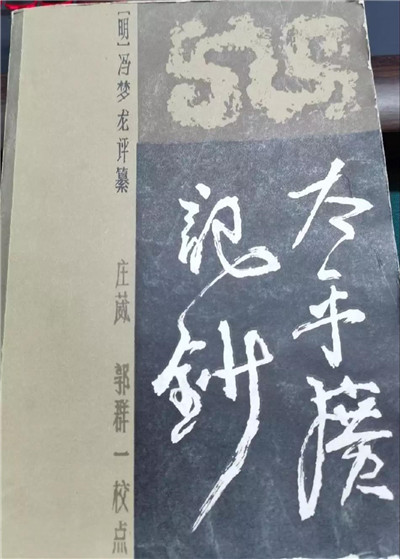 太平廣
記鈔
[明]冯梦龙评纂
庄葳 郭群一校点